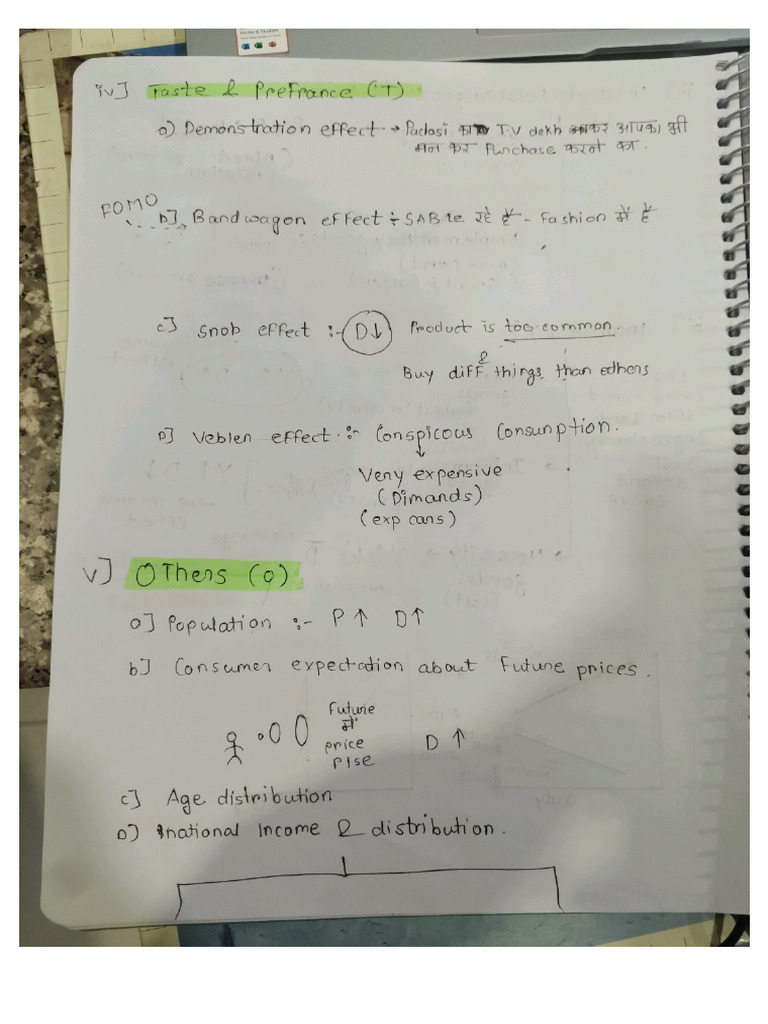 iv] Taste & Prefrance ('T)
a) Demonstration effect → Padosi का T.V dekh कर आपका भी
मन कर Purchase करने का.
FOMO
b] Bandwagon effect ÷ SAB le रहे है - Fashion में है
c] Snob effect :- D↓ Product is too common.
&
Buy diff things than edhers
D] Veblen effect :- Conspicous Consunption.
↓
Very expensive
(Dimands)
(exp cars)
v] OThers (o)
a] Population :- P↑ D↑
b] Consumer expectation about Future prices.
Future
में
price
rise
D ↑
c] Age distribution
D] national Income & distribution.